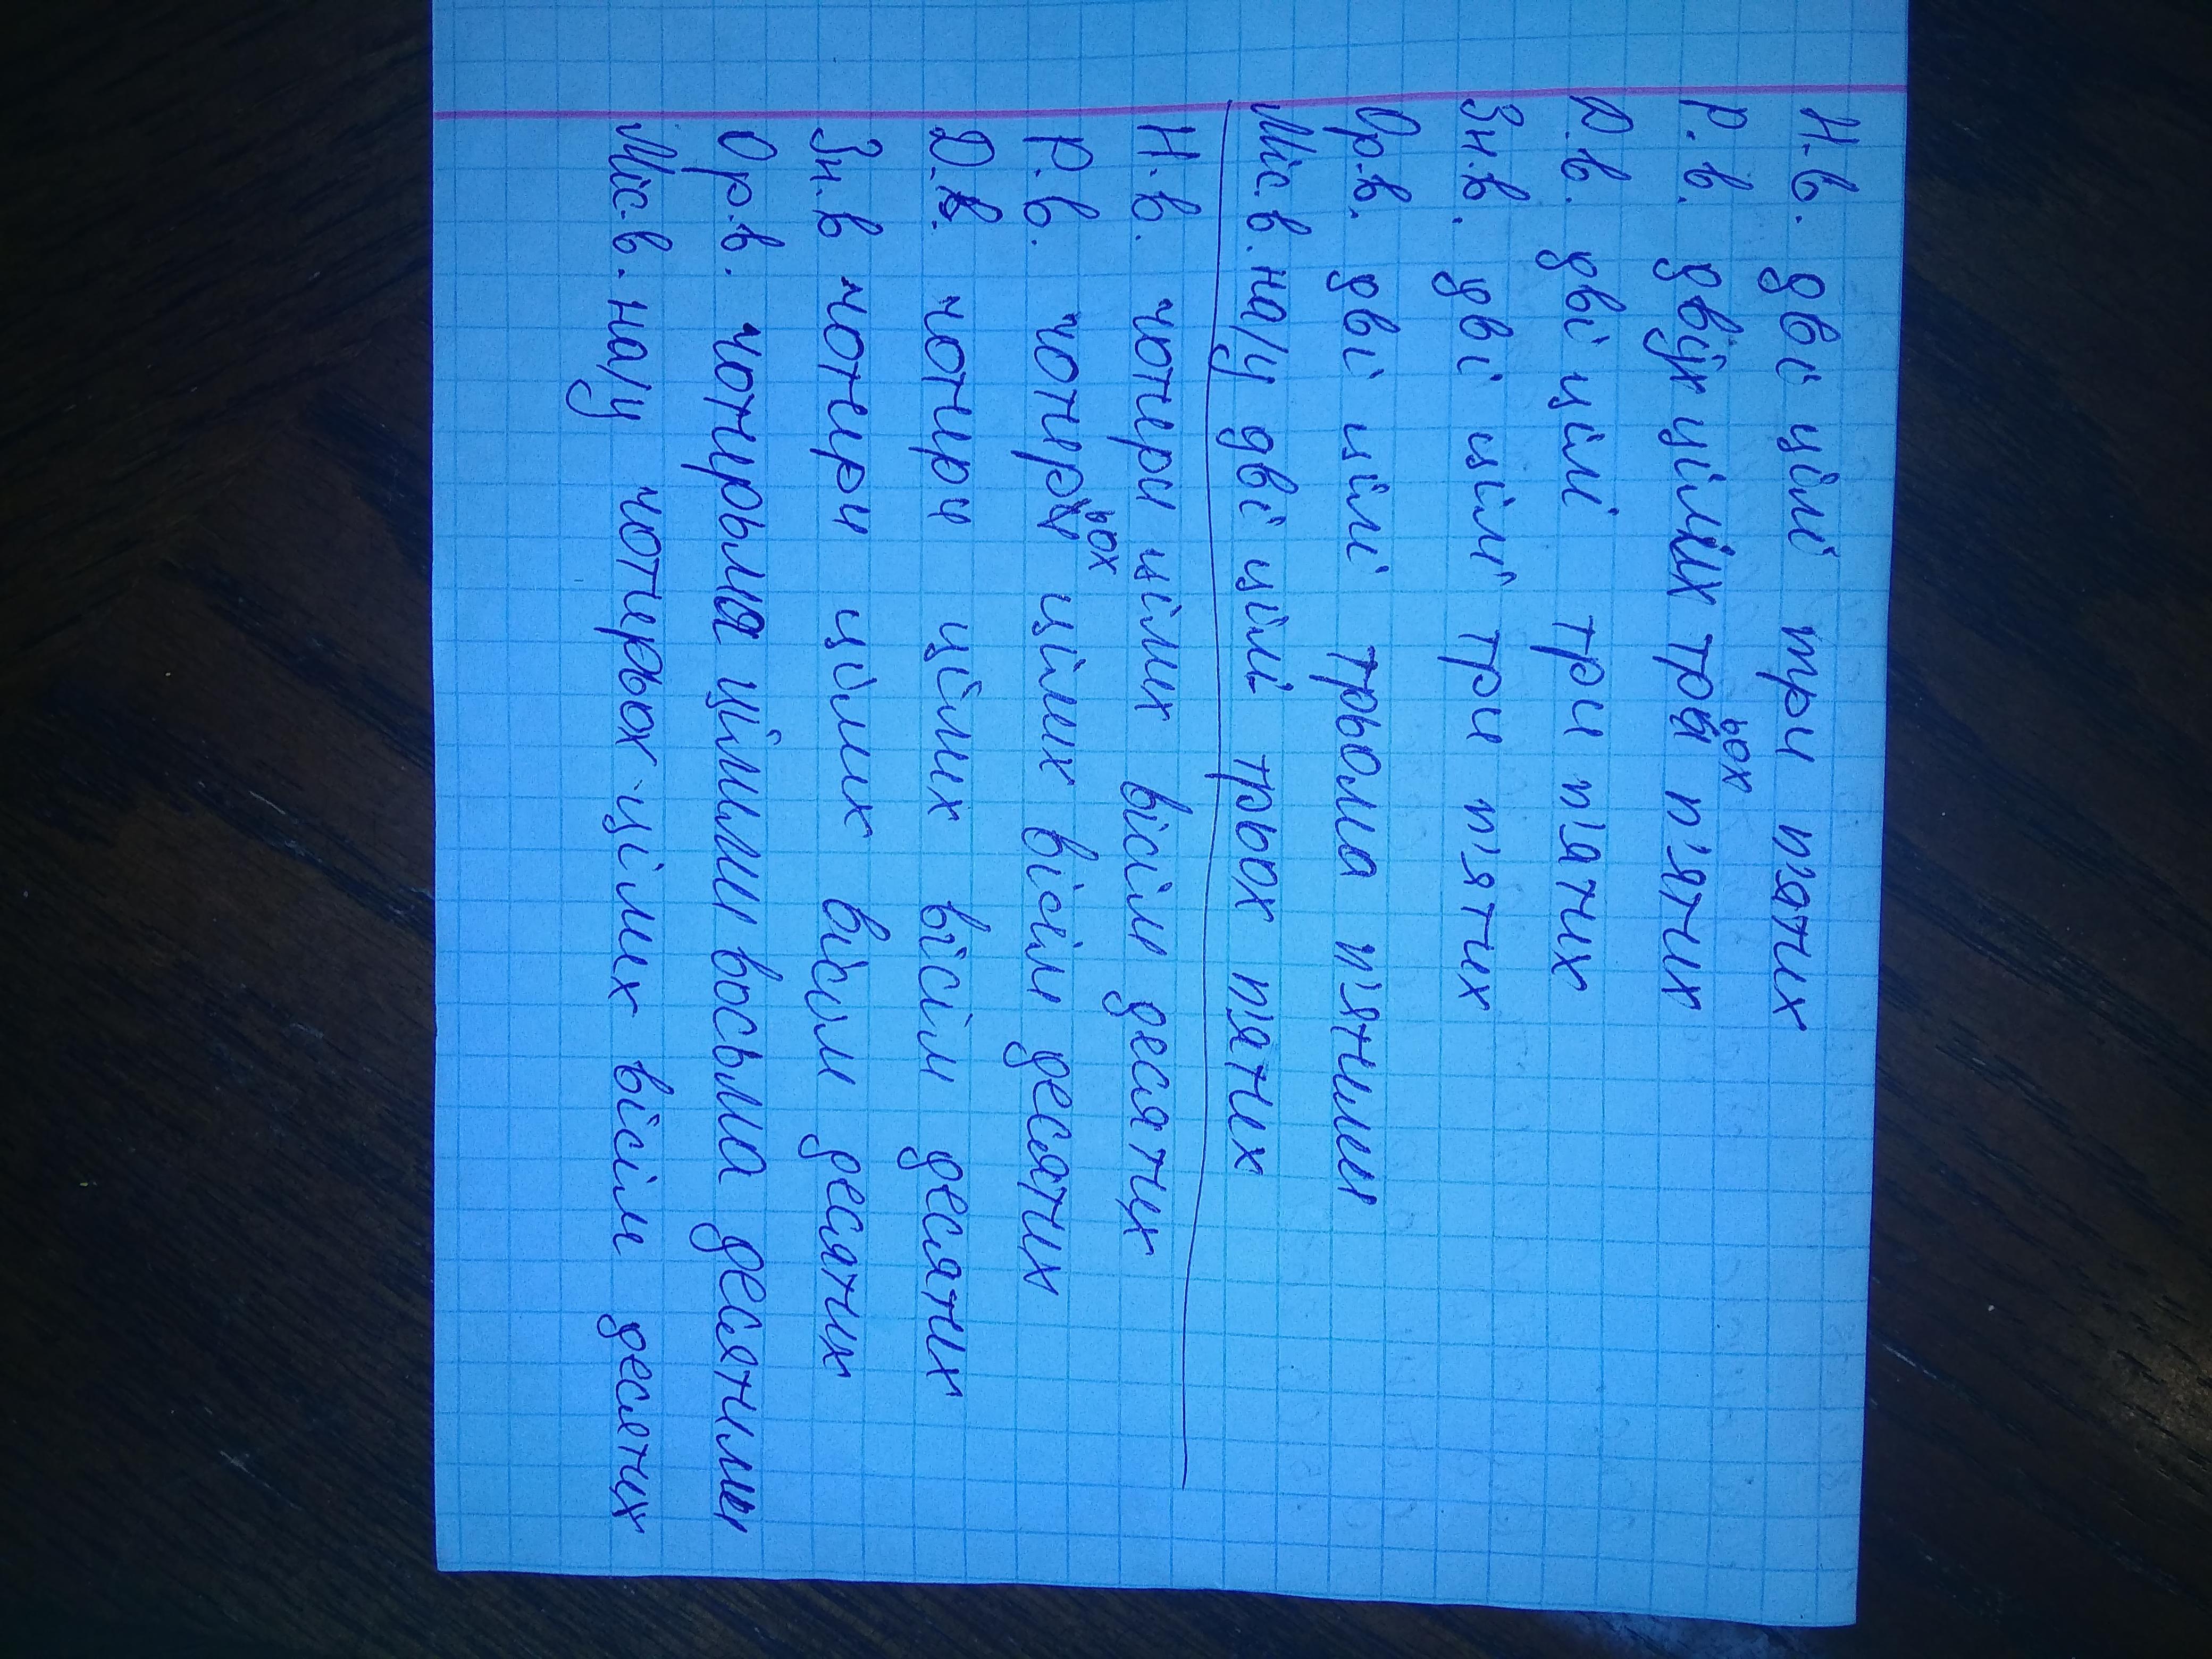 Н.в. дві цілі три п'ятих
Р.в. двух цілих трьох п'ятих
Д.в. дві цілі три п'ятих
Зн.в. дві цілі три п'ятих
Ор.в. дві цілі трьома п'ятими
Міс.в. на/у дві цілі трьох п'ятих
Н.в. чотири цілих вісім десятих
Р.в. чотирьох цілих вісім десятих
Д.в. чотири цілих вісім десятих
Зн.в чотири цілих вісім десятих
Ор.в. чотирьма цілими восьма десятими
Міс.в. на/у чотирьох цілих вісім десятих